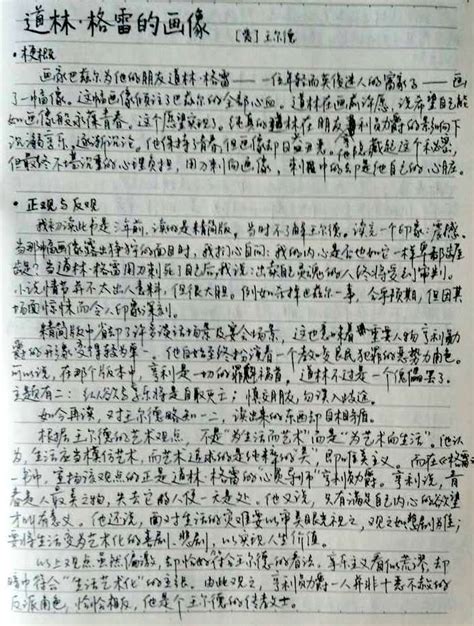 道林·格雷的画像 [英]王尔德
·梗概
画家巴兹尔为他的朋友道林·格雷——一位年轻而英俊迷人的富家子——画
了一幅像。这幅画像倾注了巴兹尔的全部心血。道林在画前许愿，说希望自己能
如画像般永葆青春。这个愿望实现了。纯真的道林在朋友亨利勋爵的影响下
沉溺享乐，逐渐沉沦。他保持了青春，但画像却日益丑恶。他统藏起这个秘密，
但最终不堪沉重的心理负担，用刀刺向画像，刺中的却是他自己的心脏。
·正观与反观
我初读此书是三年前，读的是精简版，当时不了解王尔德。读完一个印象：震撼。
当那幅画像露出狰狞的面目时，我扪心自问：我的内心是否也如它一样卑鄙
龌龊？当道林·格雷用刀刺死了自己后，我说：出卖自己灵魂的人终将受到审判。
小说情节并不太出人意料，但很大胆。例如杀掉巴兹尔一事，合乎预期，但因其
场面惊悚而令人印象深刻。
精简版中省却了许多谈话场景及宴会场景，这也意味着重要人物亨利勋
爵的形象变得较为单一。他自始至终扮演着一个教唆良民犯罪的恶势力角色。
可以说，在那个版本中，亨利是一切的罪魁祸首，道林不过是一个傀儡罢了。
主题有二：纵欲与享乐将是自取灭亡；慎交朋友，勿误入歧途。
如今再读，又对王尔德略知一二，读出来的东西却自相矛盾。
根据王尔德的艺术观点，不是“为生活而艺术”而是“为艺术而生活”。他认
为，“生活应当模仿艺术，而艺术追求的是纯粹的美”，即唯美主义。而在《格雷》
一书中，宣扬该观点的正是道林·格雷的“心灵导师”亨利勋爵。亨利说，青
春是人最美之物，失去它的人便一无是处。他又说，只有满足自己内心的欲望
才叫有意义。他还说，面对生活的灾难要以审美眼光视之，观之如悲剧为佳；
要将生活变为艺术化的喜剧、悲剧，以实现人生价值。
以上观点虽然偏激，却恰好符合王尔德的看法。享乐主义看似荒谬，却
暗中符合“生活艺术化”的主张。由此观之，亨利勋爵一人并非十恶不赦的
反派角色，恰恰相反，他是个王尔德的传教士。